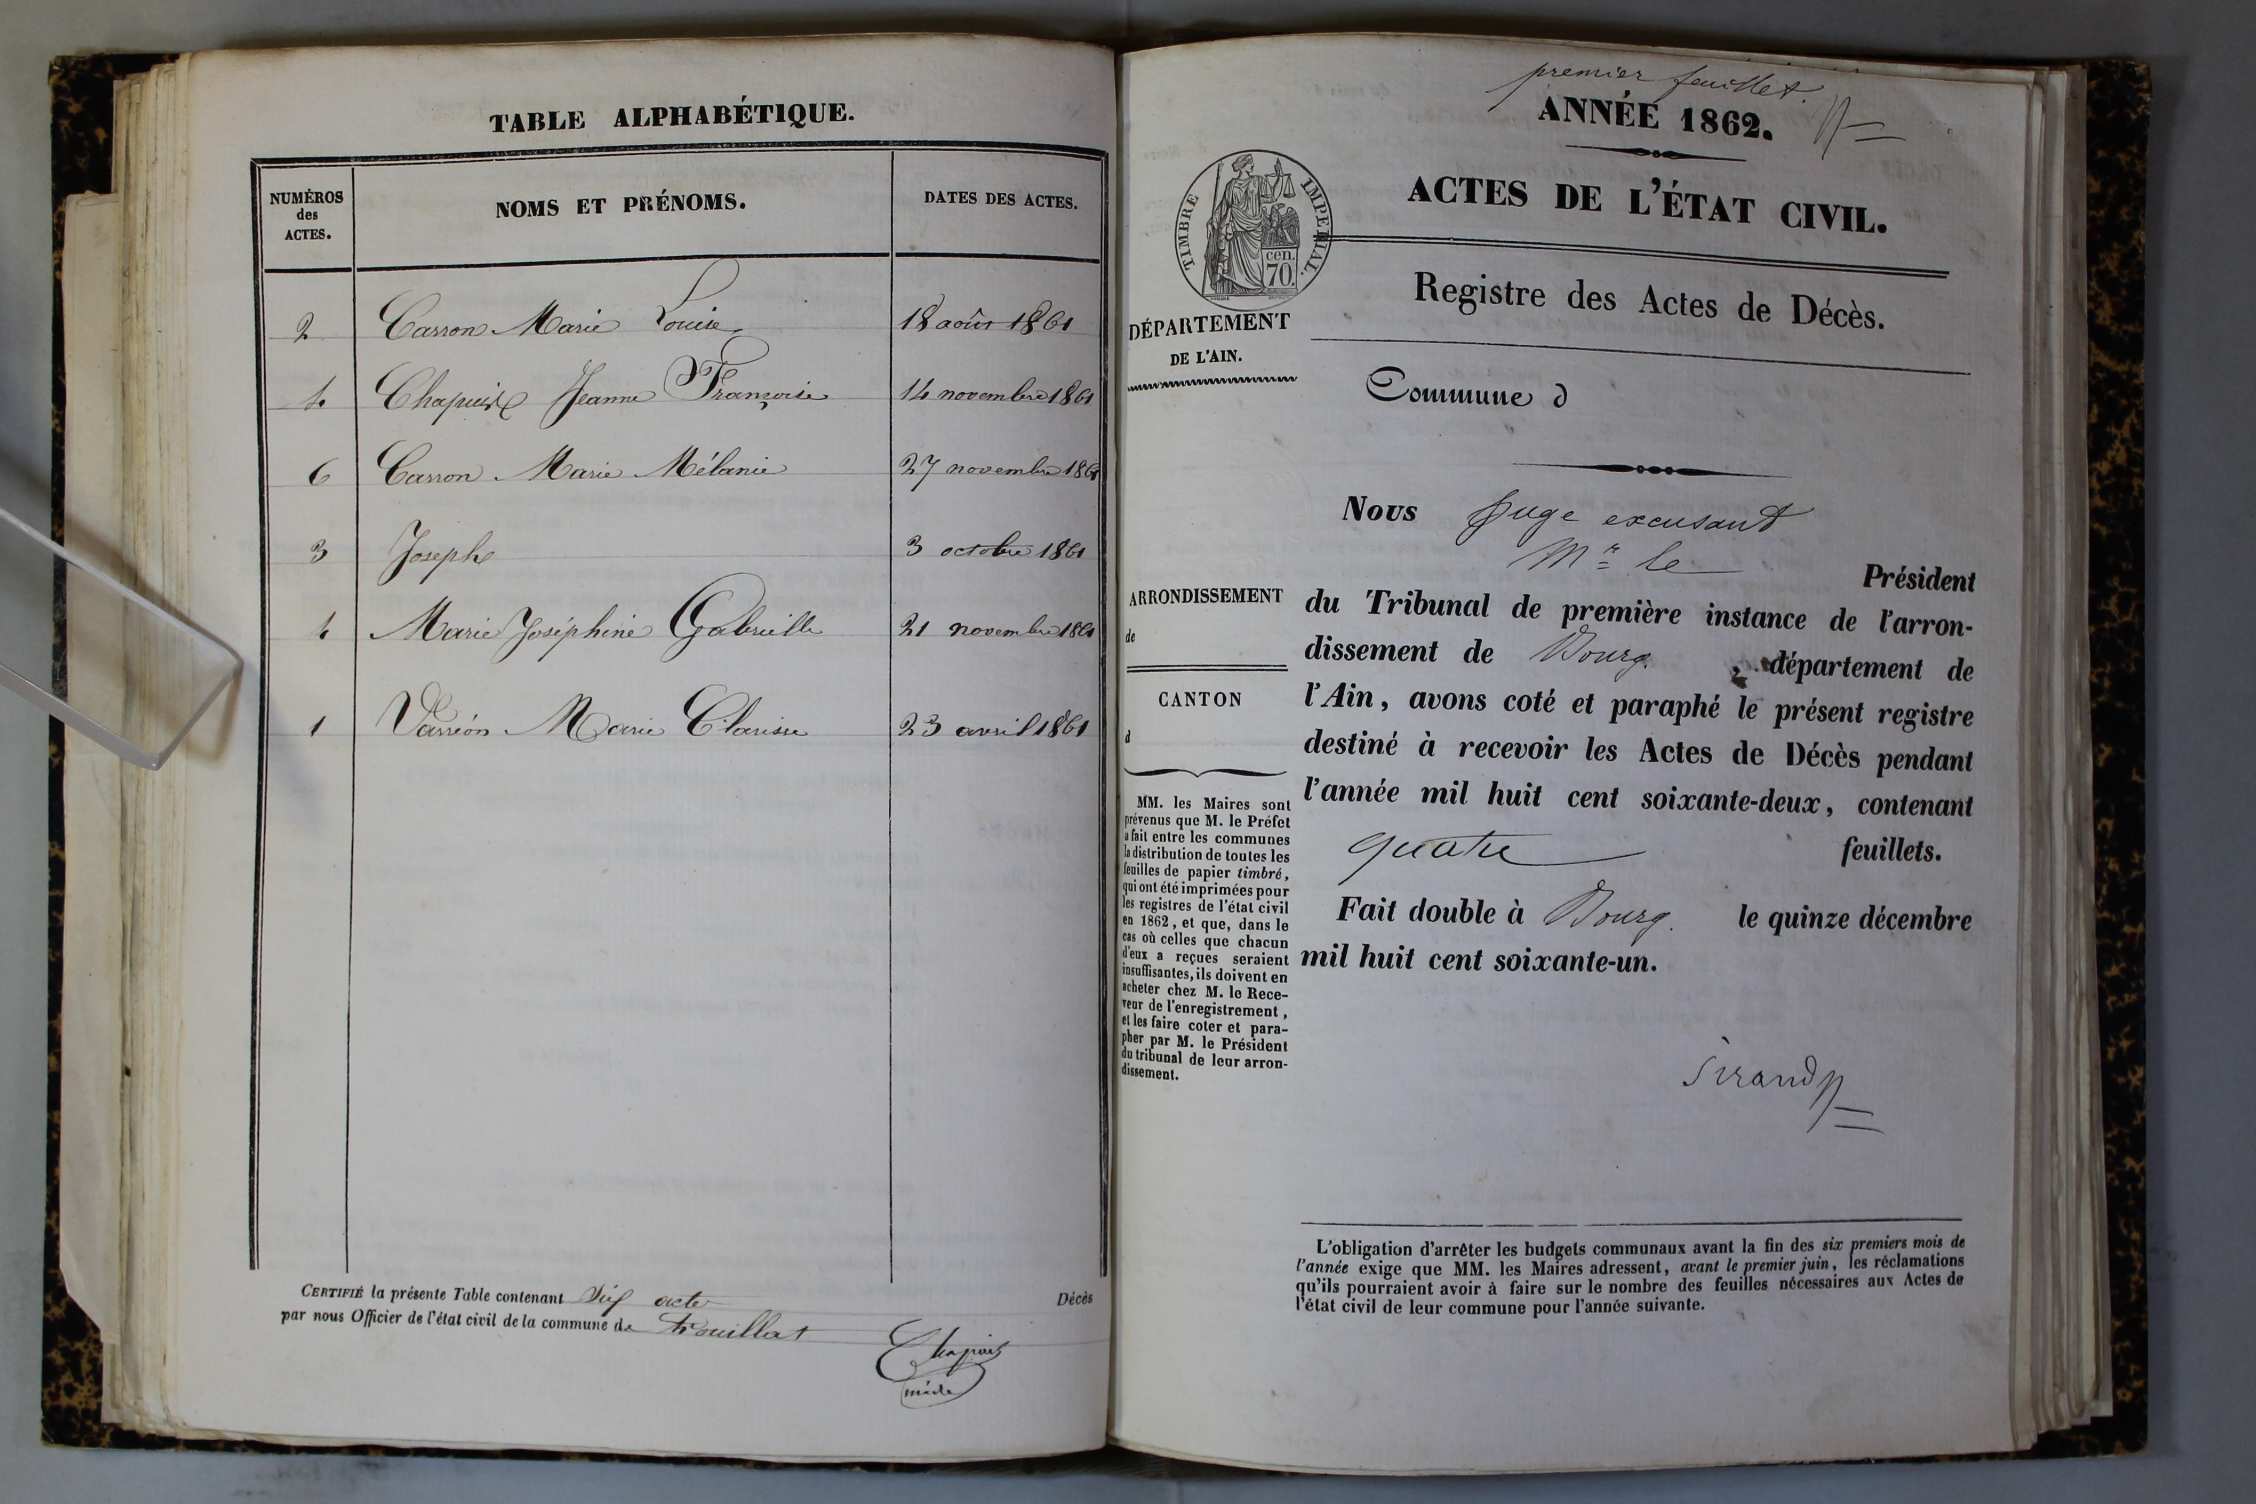 TABLE ALPHABÉTIQUE.
NUMÉROS
des
ACTES.
NOMS ET PRÉNOMS.
DATES DES ACTES.
2 Carron Marie Louise 18 août 1861
4 Chapuis Jeanne Françoise 14 novembre 1861
6 Carron Marie Mélanie 27 novembre 1861
3 Joseph 3 octobre 1861
Marie Joséphine Gabrielle 21 novembre 1861
1 Marie Clarisse 23 avril 1861
CERTIFIÉ la présente Table contenant acte Décès
par nous Officier de l'état civil de la commune de
Chapuis
premier feuillet.
ANNÉE 1862.
ACTES DE L'ÉTAT CIVIL.
TIMBRE IMPERIAL.
cen.
70.
Registre des Actes de Décès.
DÉPARTEMENT
DE L'AIN.
Commune d
Nous Juge excusant
Mr le
Président
ARRONDISSEMENT
de
du Tribunal de première instance de l'arron-
dissement de Bourg, département de
CANTON
d
l'Ain, avons coté et paraphé le présent registre
destiné à recevoir les Actes de Décès pendant
l'année mil huit cent soixante-deux, contenant
quatre feuillets.
Fait double à Bourg. le quinze décembre
mil huit cent soixante-un.
MM. les Maires sont
prévenus que M. le Préfet
a fait entre les communes
la distribution de toutes les
feuilles de papier timbré,
qui ont été imprimées pour
les registres de l'état civil
en 1862, et que, dans le
cas où celles que chacun
d'eux a reçues seraient
insuffisantes, ils doivent en
acheter chez M. le Rece-
veur de l'enregistrement,
et les faire coter et para-
pher par M. le Président
du tribunal de leur arron-
dissement.
Sirand
L'obligation d'arrêter les budgets communaux avant la fin des six premiers mois de
l'année exige que MM. les Maires adressent, avant le premier juin, les réclamations
qu'ils pourraient avoir à faire sur le nombre des feuilles nécessaires aux Actes de
l'état civil de leur commune pour l'année suivante.